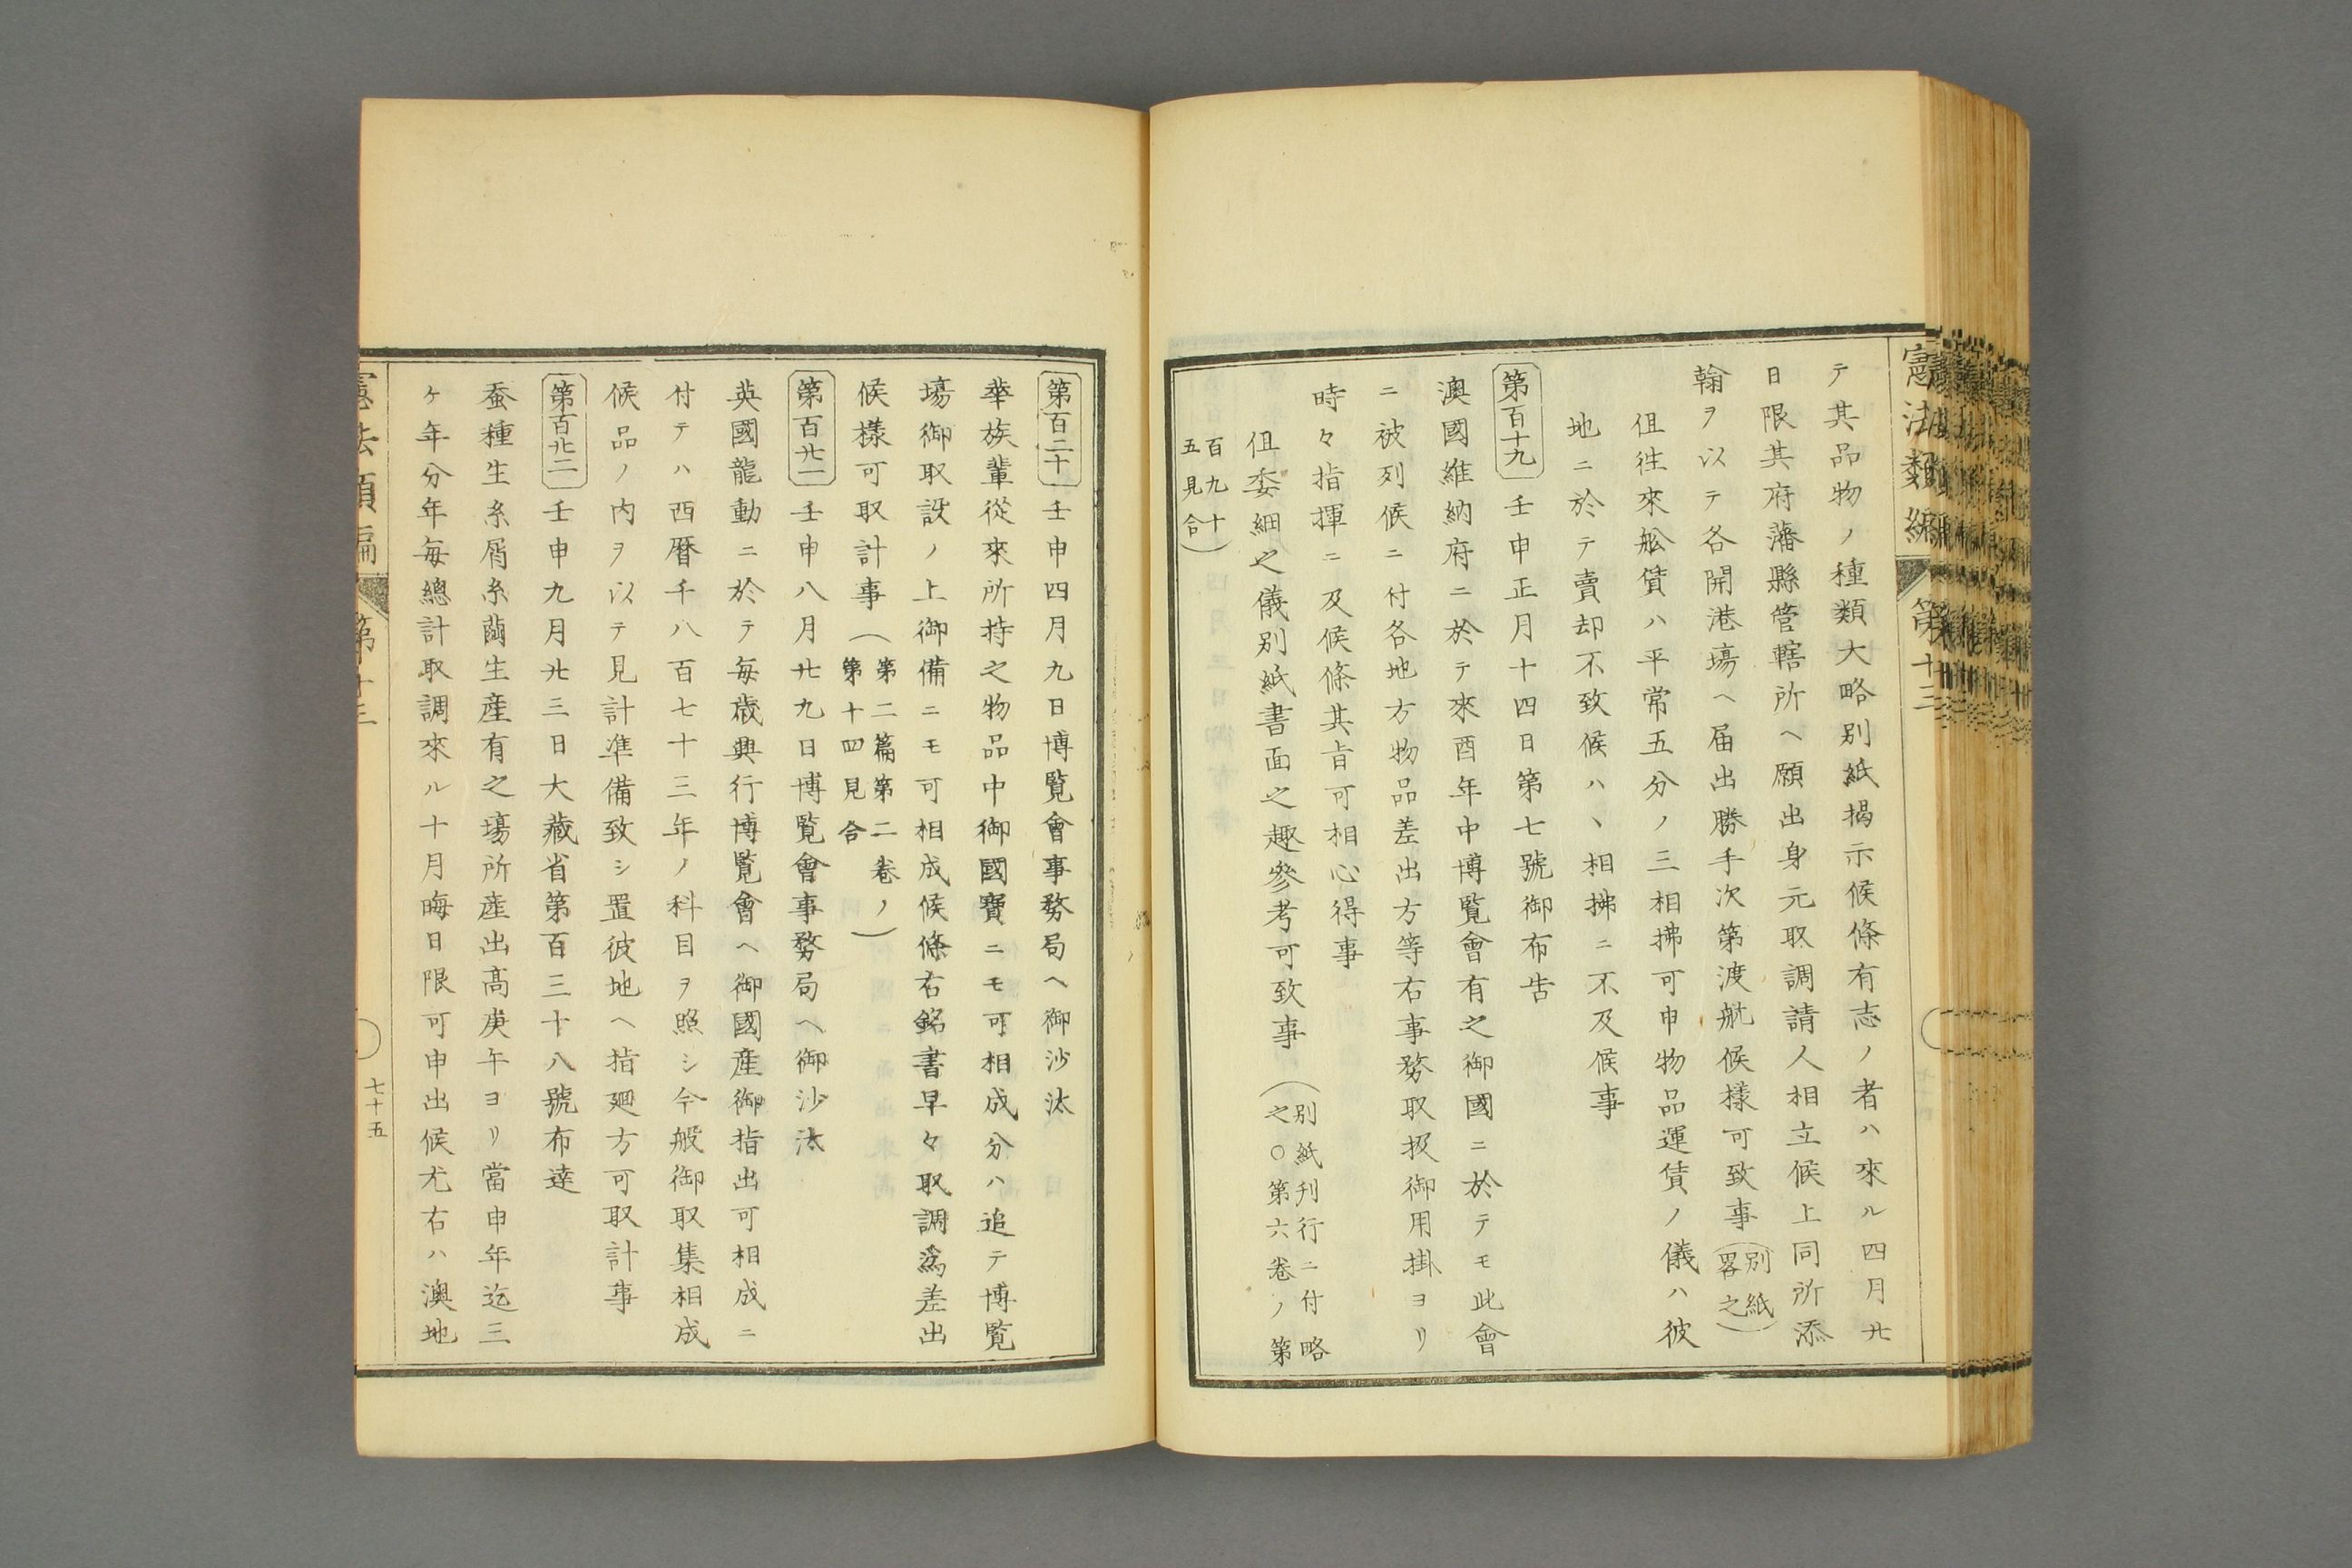 憲法類編 第十三
テ其品物ノ種類大略別紙揭示候條有志ノ者ハ來ル四月廿
日限其府藩縣管轄所ヘ願出身元取調請人相立候上同所添
翰ヲ以テ各開港場ヘ届出勝手次第渡航候樣可致事(別紙畧之)
但徃來舩賃ハ平常五分ノ三相拂可申物品運賃ノ儀ハ彼
地ニ於テ賣却不致候ハヽ相拂ニ不及候事
第百十九 壬申正月十四日第七號御布告
澳國維納府ニ於テ來酉年中博覽會有之御國ニ於テモ此會
ニ被列候ニ付各地方物品差出方等右事務取扱御用掛ヨリ
時々指揮ニ及候條其旨可相心得事
但委細之儀別紙書面之趣參考可致事(別紙刊行ニ付略之○第六卷ノ第
百九十五見合)
第百二十 壬申四月九日博覽會事務局ヘ御沙汰
華族輩從來所持之物品中御國寶ニモ可相成分ハ追テ博覽
場御取設ノ上御備ニモ可相成候條右銘書早々取調爲差出
候樣可取計事(第二篇第二卷ノ第十四見合)
第百廿一 壬申八月廿九日博覽會事務局ヘ御沙汰
英國龍動ニ於テ毎歳興行博覽會ヘ御國産御指出可相成ニ
付テハ西曆千八百七十三年ノ科目ヲ照シ今般御取集相成
候品ノ内ヲ以テ見計準備致シ置彼地ヘ指廻方可取計事
第百廿二 壬申九月廿三日大藏省第百三十八號布達
蚕種生糸屑糸繭生産有之場所産出高庚午ヨリ當申年迄三
ケ年分年毎總計取調來ル十月晦日限可申出候尤右ハ澳地
憲法類編 第十三
七十五